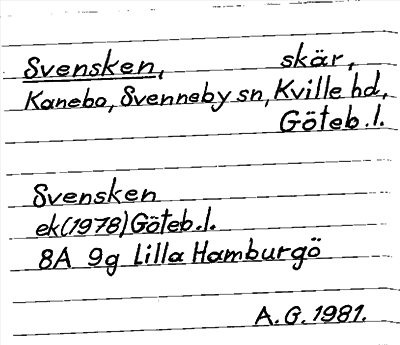 Svensken, skär,
Kanebo, Svenneby sn, Kville hd,
Göteb.l.
Svensken
ek(1978)Göteb.l.
8A 9g Lilla Hamburgö
A.G. 1981.